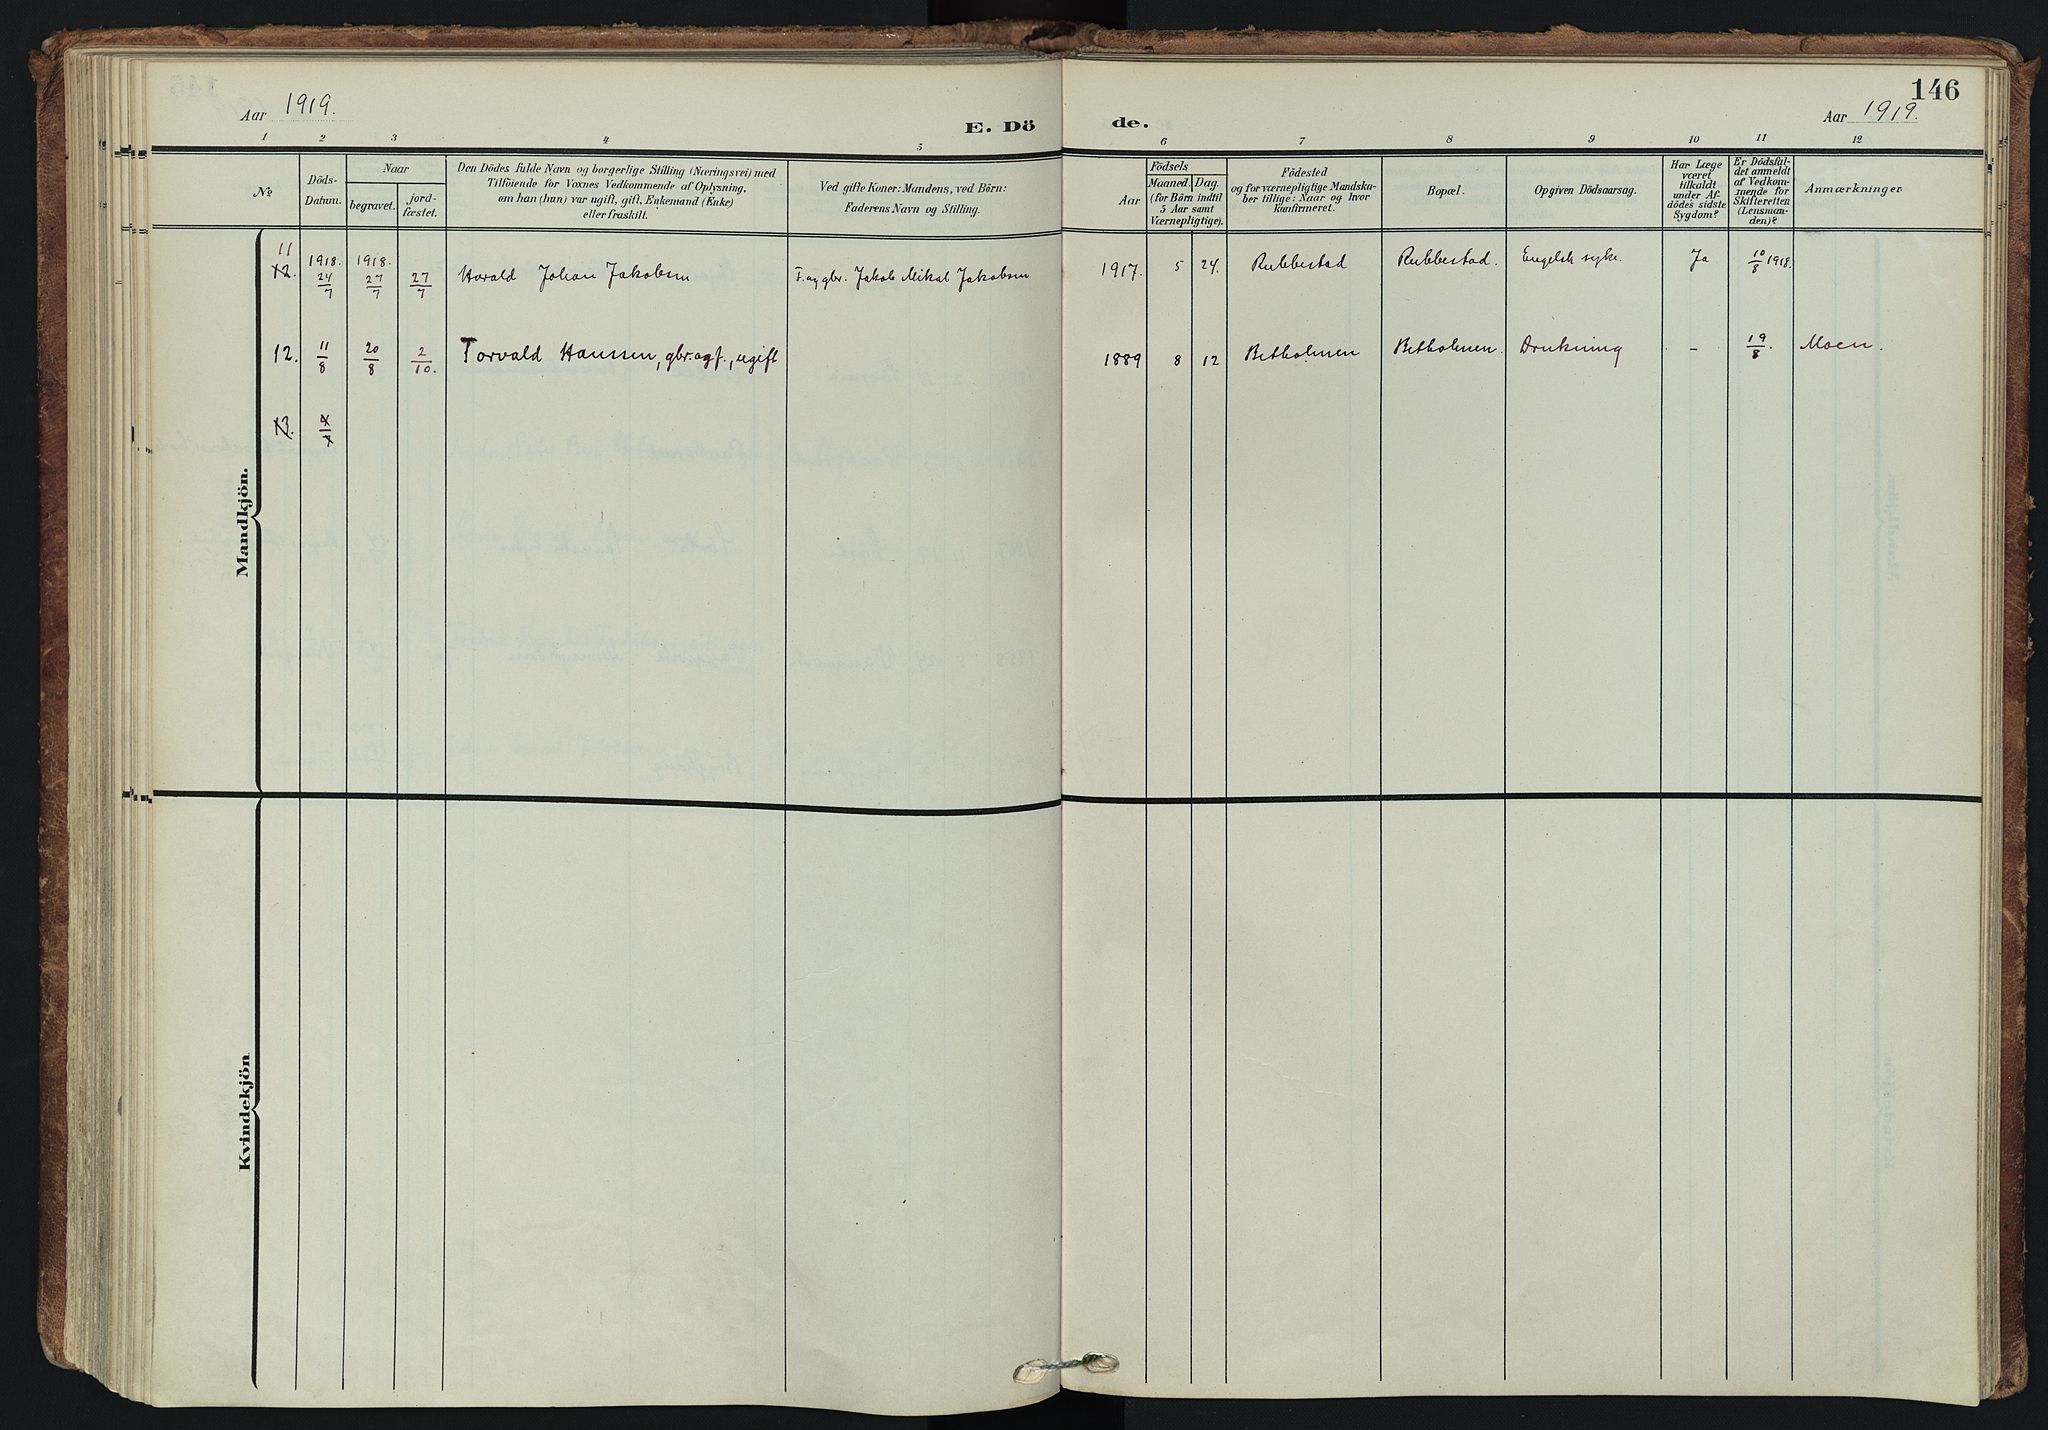 146
Aar 1919.
E. Dö de.
Aar 1919.
1 2 3 4 5 6 7 8 9 10 11 12
№
Döds-
Datum.
Naar
begravet.
jord-
fæstet.
Den Dödes fulde Navn og borgerlige Stilling (Næringsvei) med
Tilföiende for Voxnes Vedkommende af Oplysning,
om han (hun) var ugift, gift, Enkemand (Enke)
eller fraskilt.
Ved gifte Koner: Mandens, ved Börn:
Faderens Navn og Stilling.
Aar
Födsels
Maaned. Dag.
(for Börn indtil
5 Aar samt
Værnepligtige).
Födested
og for værnepligtige Mandska-
ber tillige: Naar og hvor
konfirmeret.
Bopæl.
Opgiven Dödsaarsag.
Har Læge
været
tilkaldt
under Af-
dödes sidste
Sygdom?
Er Dödsfal-
det anmeldt
af Vedkom-
mende for
Skifteretten
(Lensman-
den)?
Anmærkninger
11
12. 1918. 24/7 1918. 27/7 27/7 Harald Johan Jakobsen F. og gbr. Jakob Mikal Jakobsen 1917. 5 24. Rubbestad Rubbestad. Engelsk syke. Ja 10/8 1918.
12. 11/8 20/8 2/10. Torvald Hanssen, gbr. og f., ugift 1889 8 12 Betholmen Betholmen. Drukning - 19/8. Moen.
13.
Mandkjön.
Kvindekjön